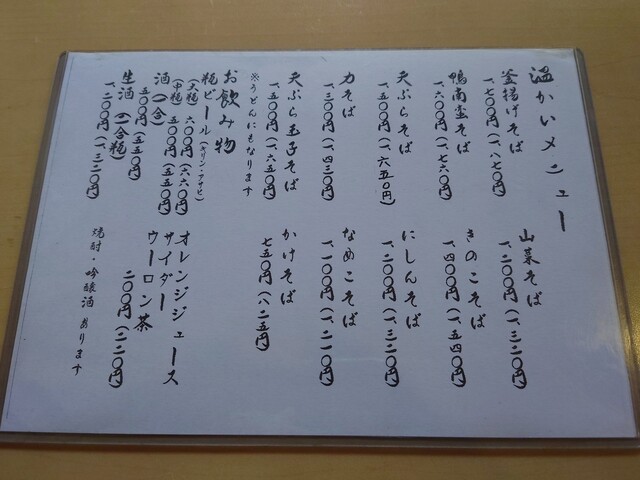 温かいメニュー
釜揚げそば
一、七〇〇円(一、八七〇円)
鴨南蛮そば
一、六〇〇円(一、七六〇円)
天ぷらそば
一、五〇〇円(一、六五〇円)
力そば
一、三〇〇円(一、四三〇円)
天ぷら玉子そば
一、五〇〇円(一、六五〇円)
※うどんにもなります
山菜そば
一、二〇〇円(一、三二〇円)
きのこそば
一、四〇〇円(一、五四〇円)
にしんそば
一、二〇〇円(一、三二〇円)
なめこそば
一、一〇〇円(一、二一〇円)
かけそば
七五〇円(八二五円)
お飲み物
瓶ビール(キリン・アサヒ)
(大瓶) 六〇〇円(六六〇円)
(中瓶) 五〇〇円(五五〇円)
酒(一合)
五〇〇円(五五〇円)
生酒(二合瓶)
一、二〇〇円(一、三二〇円)
オレンジジュース
サイダー
ウーロン茶
二〇〇円(二二〇円)
焼酎・吟醸酒 あります